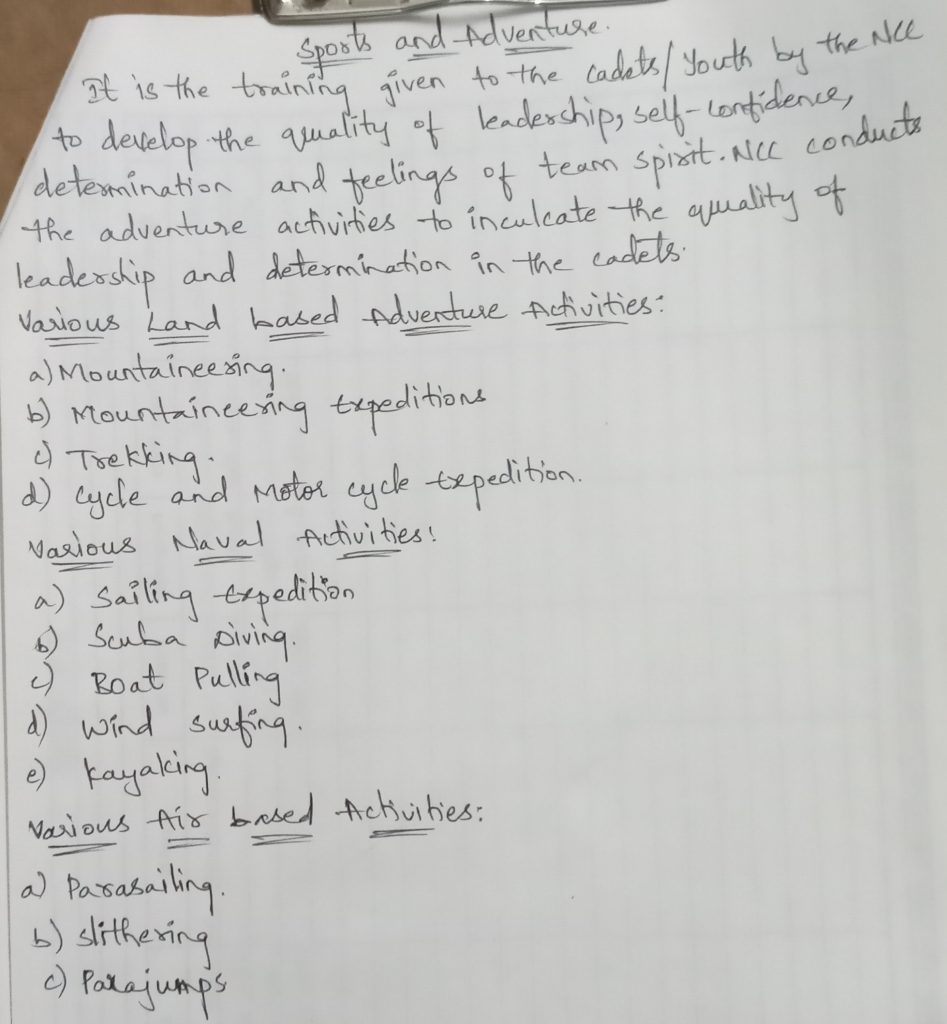 Sports and Adventure.
It is the training given to the cadets/Youth by the NCC
to develop the quality of leadership, self-confidence,
determination and feelings of team spirit. NCC conducts
the adventure activities to inculcate the quality of
leadership and determination in the cadets.
Various Land based Adventure Activities:
a) Mountaineering.
b) Mountaineering Expeditions
c) Trekking.
d) Cycle and Motor cycle Expedition.
Various Naval Activities:
a) Sailing Expedition
b) Scuba Diving.
c) Boat Pulling
d) Wind surfing.
e) Kayaking.
Various Air based Activities:
a) Parasailing.
b) Slithering
c) Parajumps